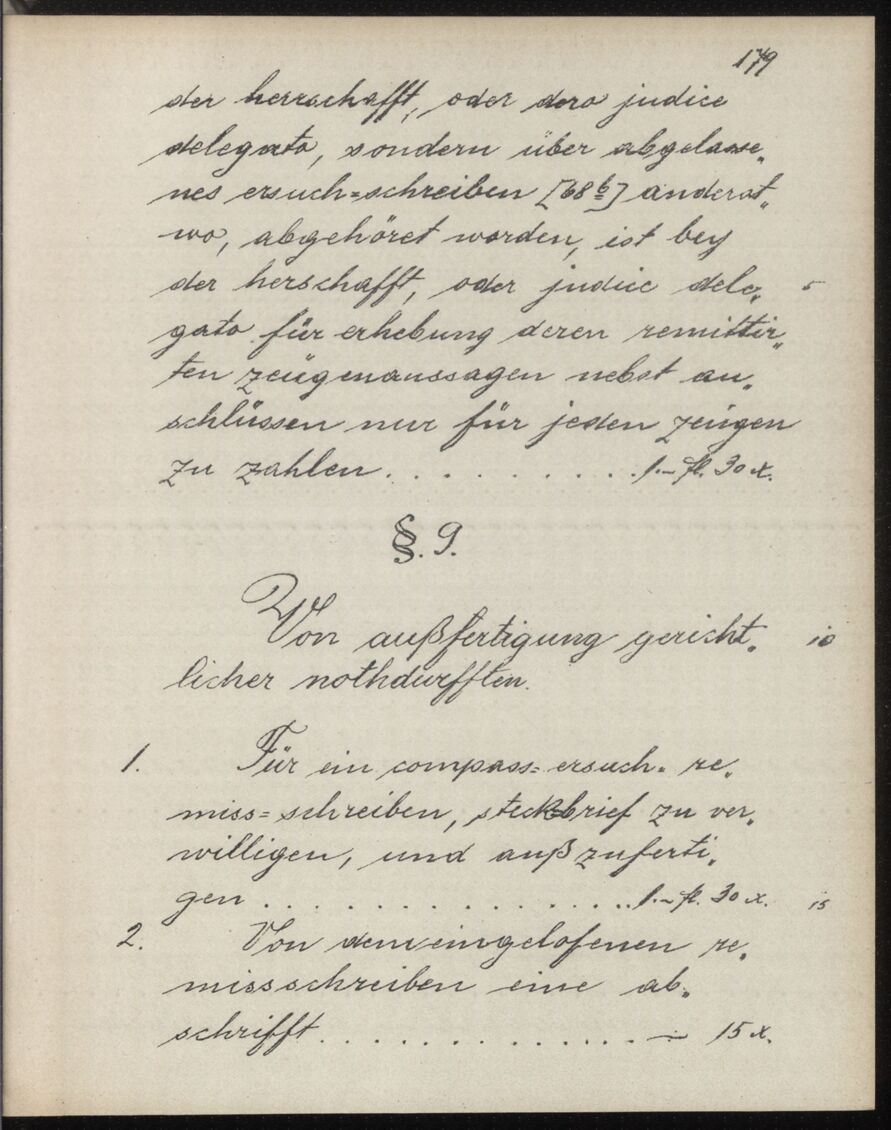 179
der herrschafft, oder dero judice
delegato, sondern über abgelasse„
nes ersuch=schreiben [68 b] anderst„
wo, abgehöret worden, ist bey
der herschafft, oder judice dele„ 5
gato für erhebung deren remittir„
ten zeügenaussagen nebst an„
schlüssen nur für jeden zeügen
zu zahlen . . . . . . . . . . 1.– fl. 30 x.
§. 9.
Von außfertigung gericht„ 10
licher nothdurfften.
1. Für ein compass= ersuch= re„
miss=schreiben, steckbrief zu ver„
willigen, und außzuferti„
gen . . . . . . . . . . . . . . . 1.– fl. 30 x. 15
2. Von dem eingelofenen re„
missschreiben eine ab„
schrifft . . . . . . . . . . . . . . — 15 x.